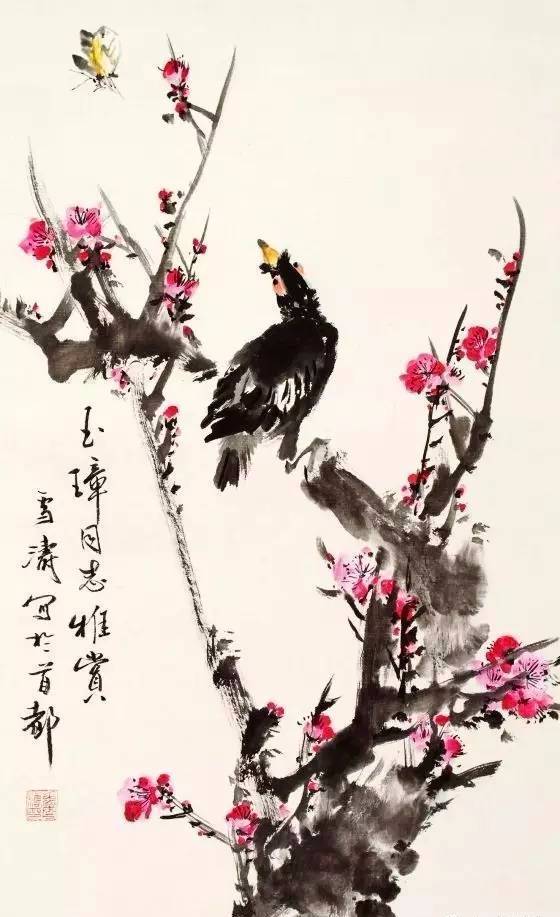 玉璋同志雅賞
雪濤写於首都